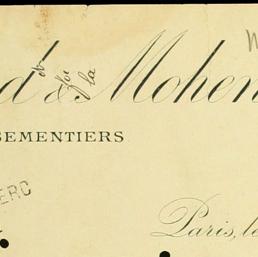 d & Mohen
SEMENTIERS
ERC
Paris, le